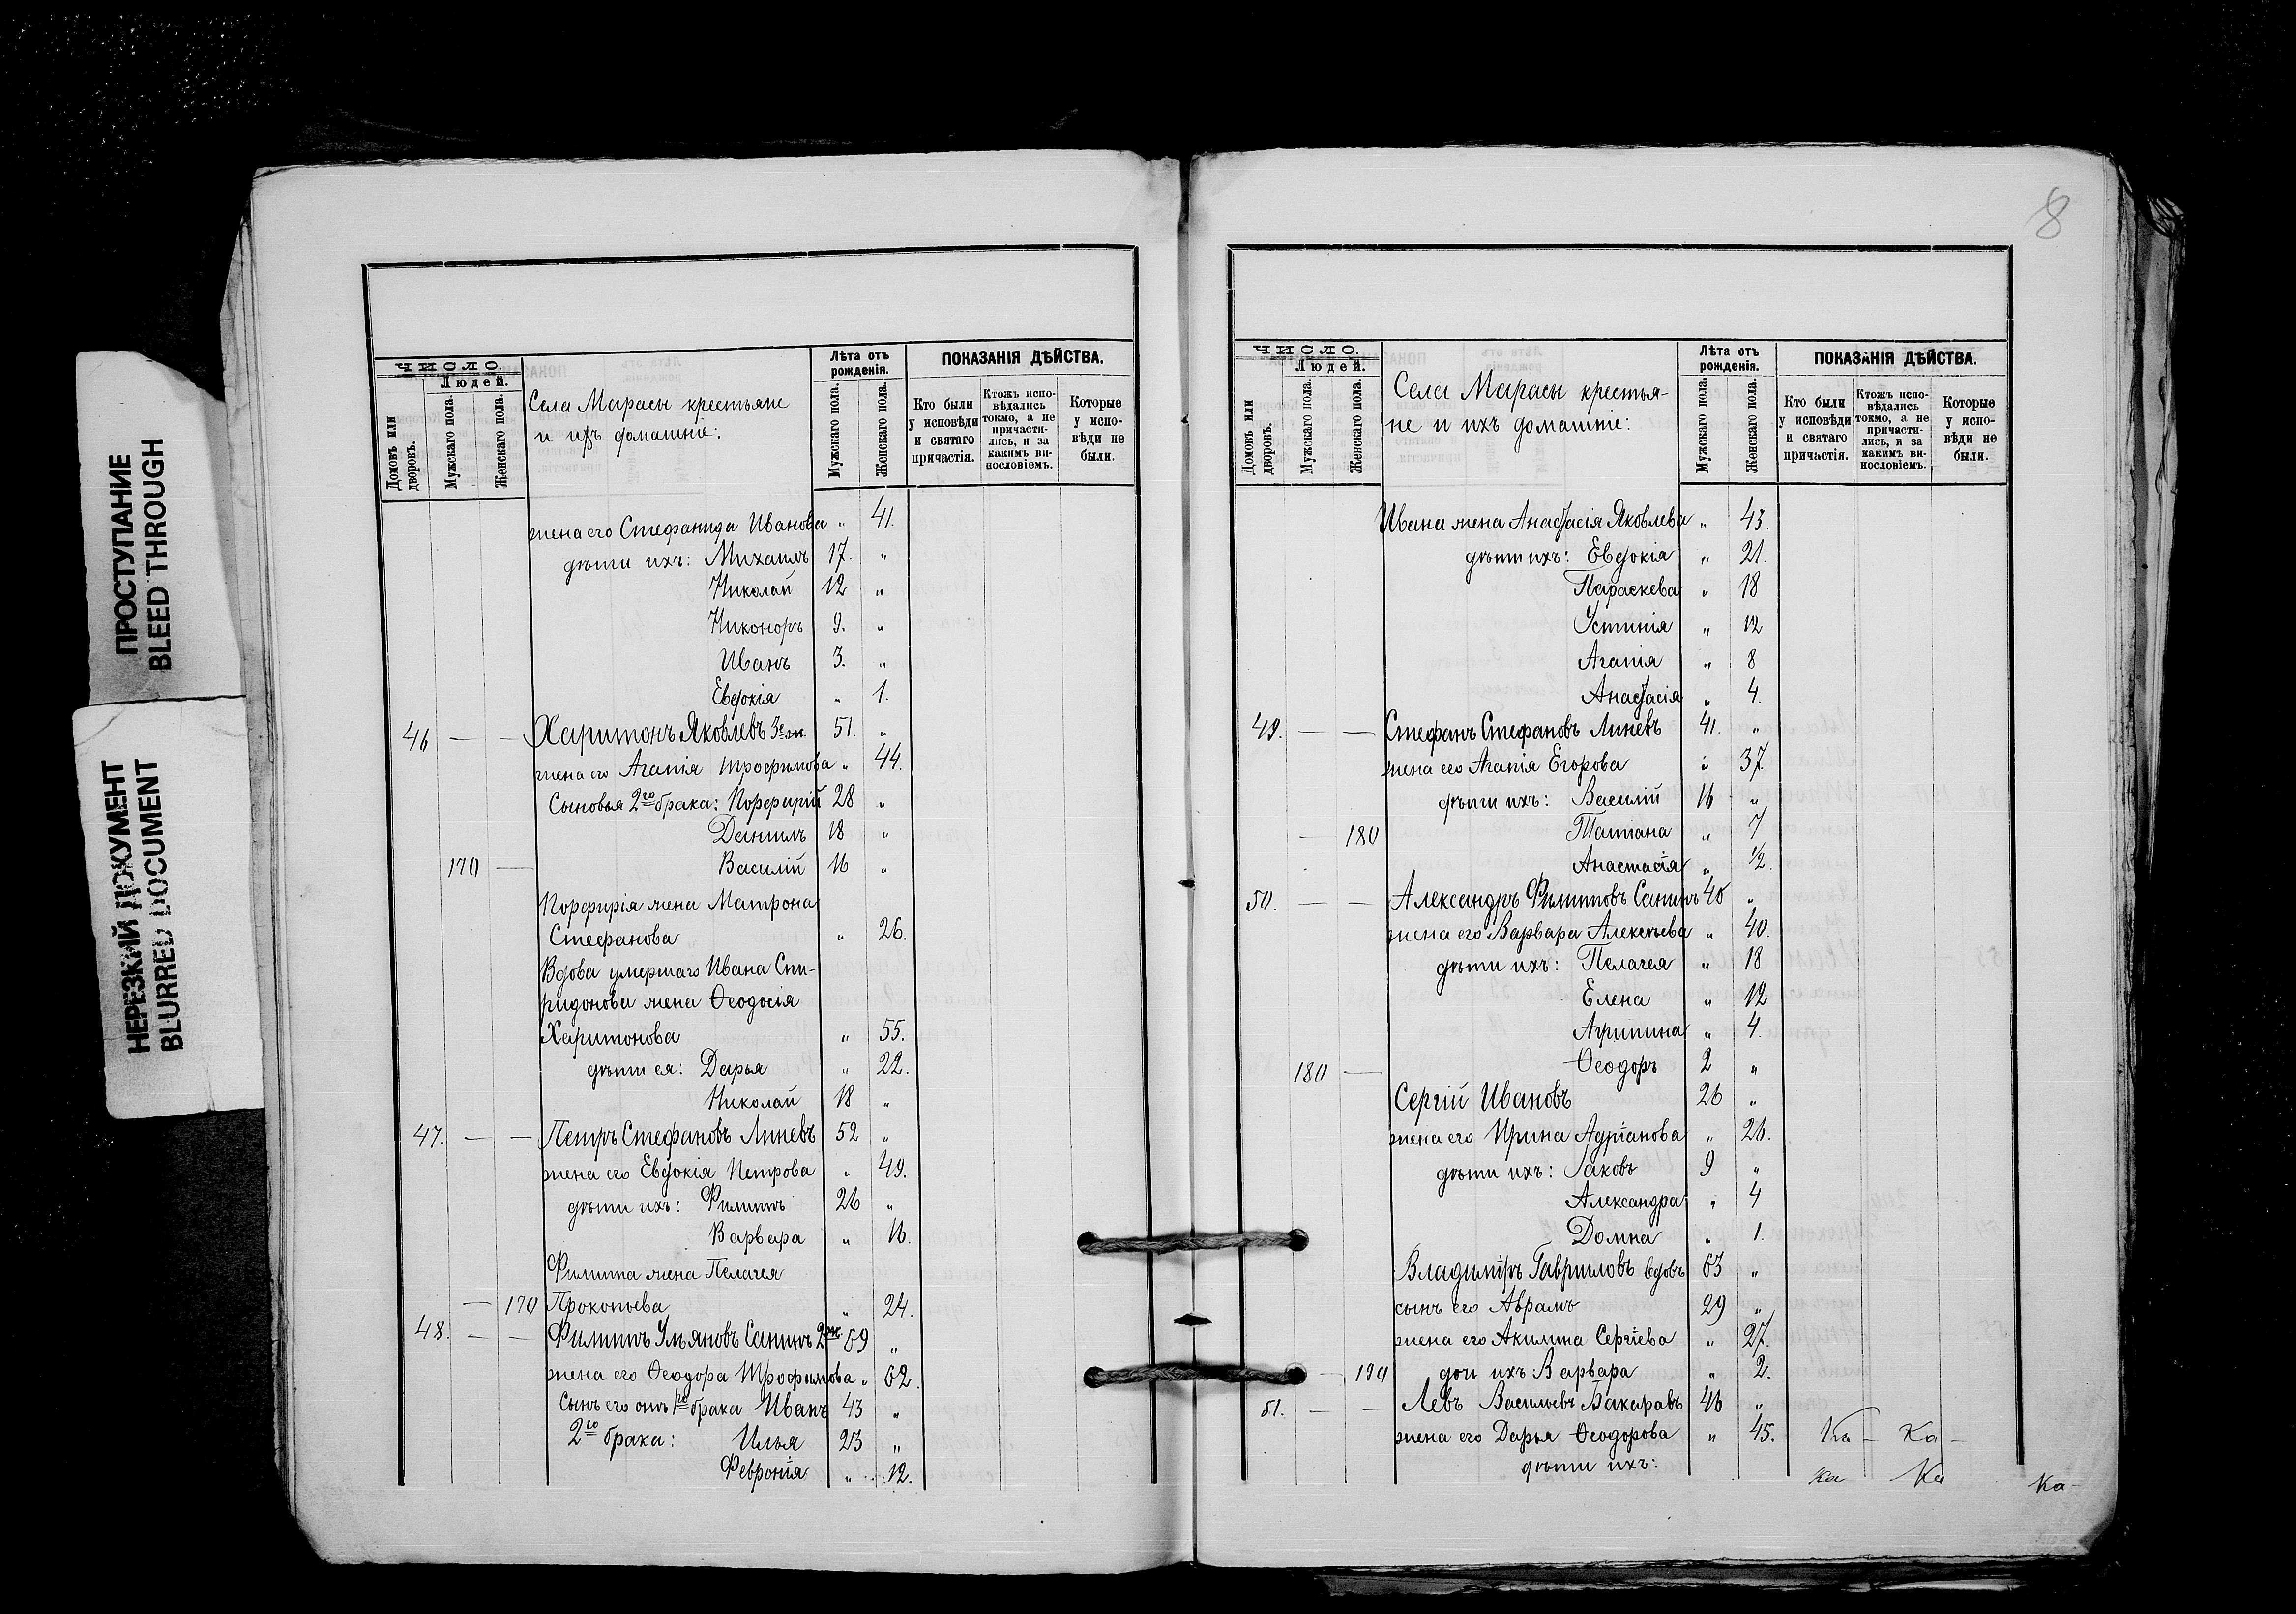 ПРОСТУПАНИЕ
BLEED THROUGH
НЕРЕЗКИЙ ДОКУМЕНТ
BLURRED DOCUMENT
ЧИСЛО.
Людей.
Домовъ или дворовъ.
Мужскаго пола.
Женскаго пола.
Села Марасы крестьяне
и ихъ домашніе:
Лѣта отъ рожденія.
Мужскаго пола.
Женскаго пола.
ПОКАЗАНІЯ ДѢЙСТВА.
Кто были у исповѣди и святаго причастія.
Ктожъ исповѣдались токмо, а не причастились, и за какимъ винословіемъ.
Которые у исповѣди не были.
жена его Стефанида Иванова " 41.
дѣти ихъ: Михаилъ 17. "
Николай 12 "
Никоноръ 9. "
Иванъ 3. "
Евдокія " 1.
46 — — Харитонъ Яковлевъ 51. "
жена его Агапія Трофимова " 44.
Сыновья 2го брака: Порфирій 28 "
Даниилъ 18 "
170 — Василій 16 "
Порфирія жена Матрона
Стефанова " 26.
Вдова умершаго Ивана Спи-
ридонова жена Ѳеодосія
Харитонова " 55.
дѣти ея: Дарья " 22.
Николай 18 "
47. — — Петръ Стефановъ Линевъ 52 "
жена его Евдокія Петрова " 49.
дѣти ихъ: Филиппъ 26 "
Варвара " 16.
Филиппа жена Пелагея
— 170 Прокопьева " 24.
48. — — Филиппъ Ульяновъ Санинъ 69 "
жена его Ѳеодора Трофимова " 62.
Сынъ его отъ 1го брака Иванъ 43 "
2го брака: Илья 23 "
Февронія " 12.
8
ЧИСЛО.
Людей.
Домовъ или дворовъ.
Мужскаго пола.
Женскаго пола.
Села Марасы крестья-
не и ихъ домашніе:
Лѣта отъ рожденія.
Мужскаго пола.
Женскаго пола.
ПОКАЗАНІЯ ДѢЙСТВА.
Кто были у исповѣди и святаго причастія.
Ктожъ исповѣдались токмо, а не причастились, и за какимъ винословіемъ.
Которые у исповѣди не были.
Ивана жена Анастасія Яковлева " 43.
дѣти ихъ: Евдокія " 21.
Параскева " 18
Устинія " 12
Агапія " 8
Анастасія " 4.
49. — — Стефанъ Стефановъ Линевъ 41. "
жена его Агапія Егорова " 37.
дѣти ихъ: Василій 16 "
— 180 Татіана " 7
Анастасія " 1/2.
50. — — Александръ Филипповъ Санинъ 40 "
жена его Варвара Алексѣева " 40.
дѣти ихъ: Пелагея " 18
Елена " 12
Агрипина " 4.
180 — Ѳеодоръ 2 "
Сергій Ивановъ 26 "
жена его Ирина Адріанова " 26.
дѣти ихъ: Іаковъ 9 "
Александра " 4
Домна " 1.
Владиміръ Гавриловъ вдовъ 63 "
сынъ его Аврамъ 29 "
жена его Акилина Сергіева " 27.
— 190 дочь ихъ: Варвара " 2.
51. — — Левъ Васильевъ Бакаравъ 46 "
жена его Дарья Ѳеодорова " 45. Ка — Ка —
дѣти ихъ: Ка Ка Ка —